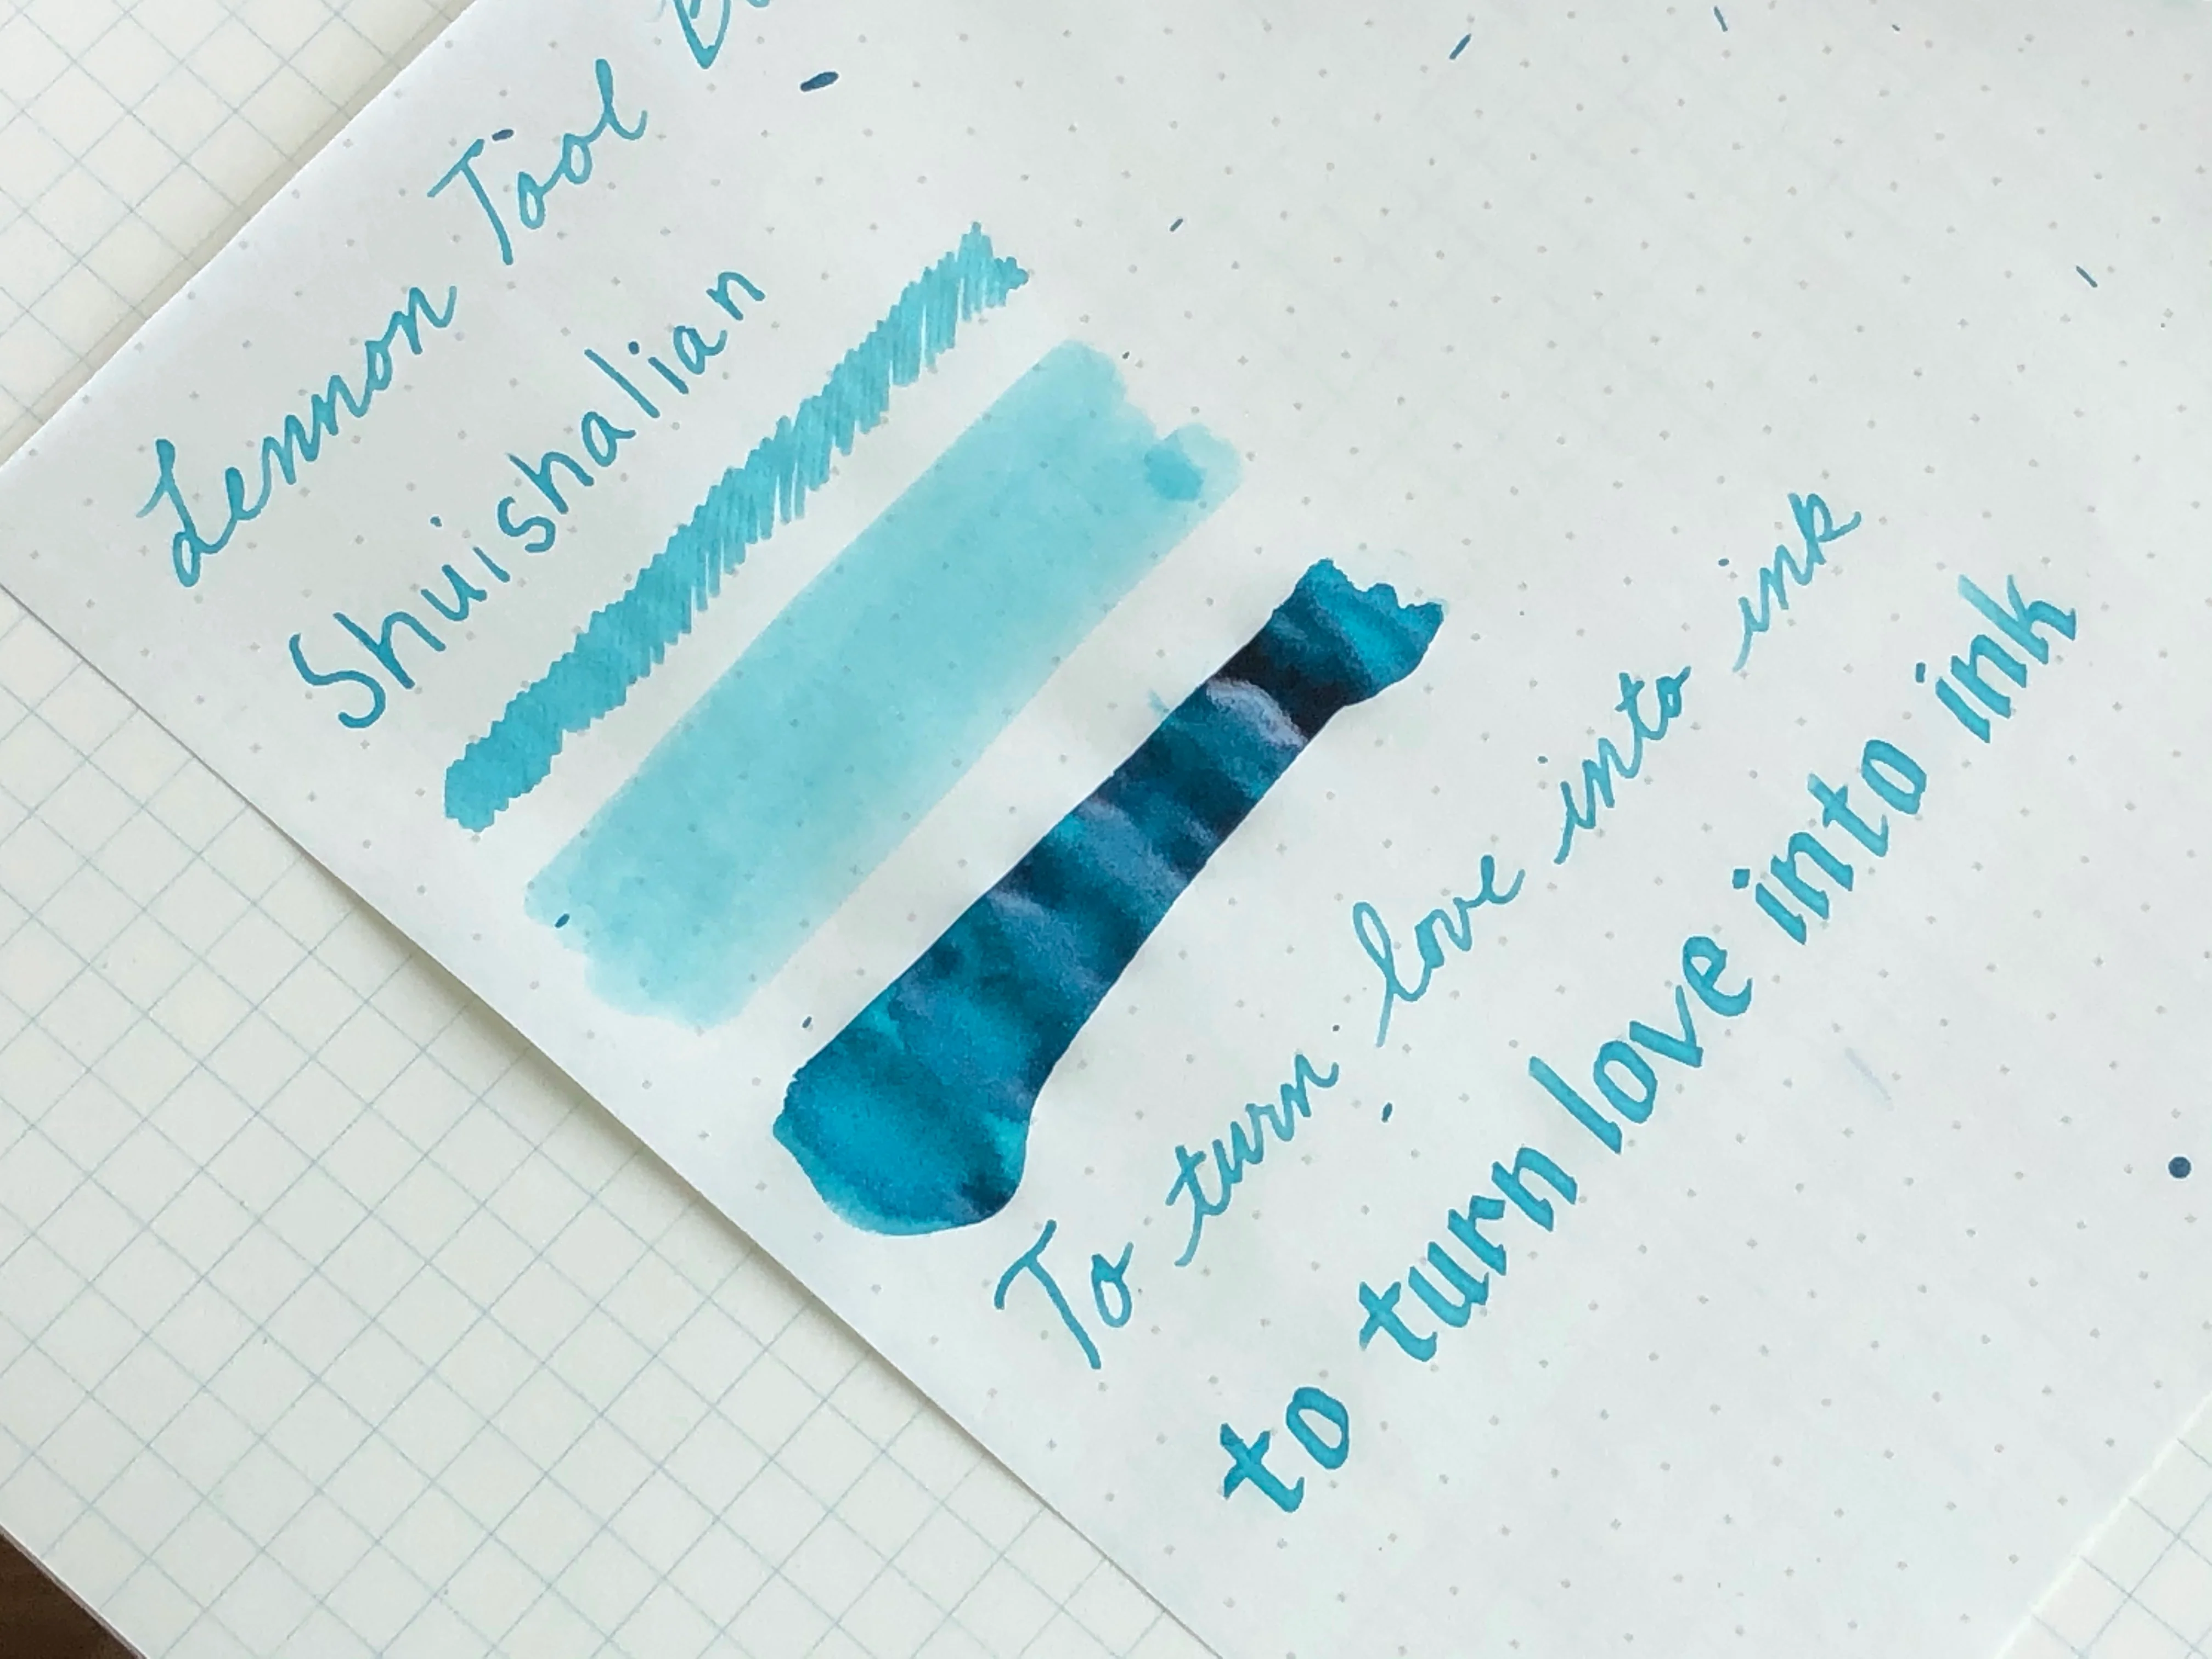 Lennon Tool
Shuishalian
To turn love into ink
to turn love into ink